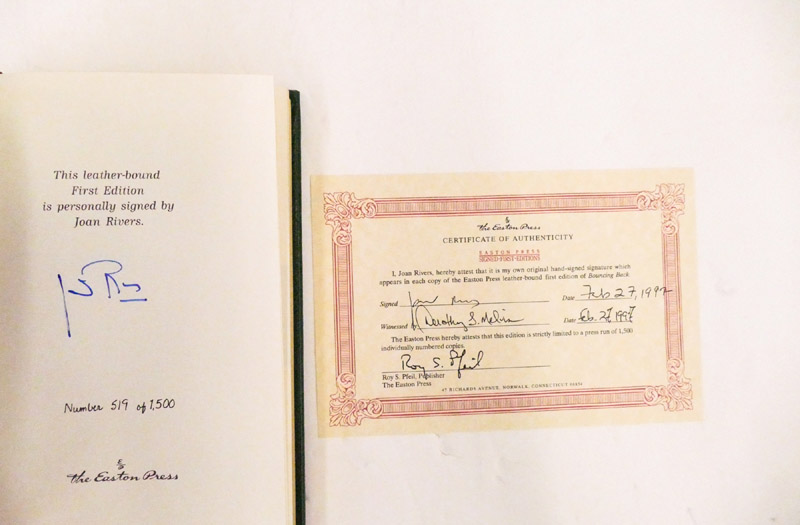 This leather-bound
First Edition
is personally signed by
Joan Rivers.
Number 519 of 1,500
the Easton Press
the Easton Press
CERTIFICATE OF AUTHENTICITY
EASTON PRESS
SIGNED FIRST EDITIONS
I, Joan Rivers, hereby attest that it is my own original hand-signed signature which
appears in each copy of the Easton Press leather-bound first edition of Bouncing Back
Signed Date Feb 27, 1997
Witnessed by Date Feb. 27 1997
The Easton Press hereby attests that this edition is strictly limited to a press run of 1,500
individually numbered copies.
Roy S. Pfeil
Roy S. Pfeil, Publisher
The Easton Press
47 RICHARDS AVENUE, NORWALK, CONNECTICUT 06854